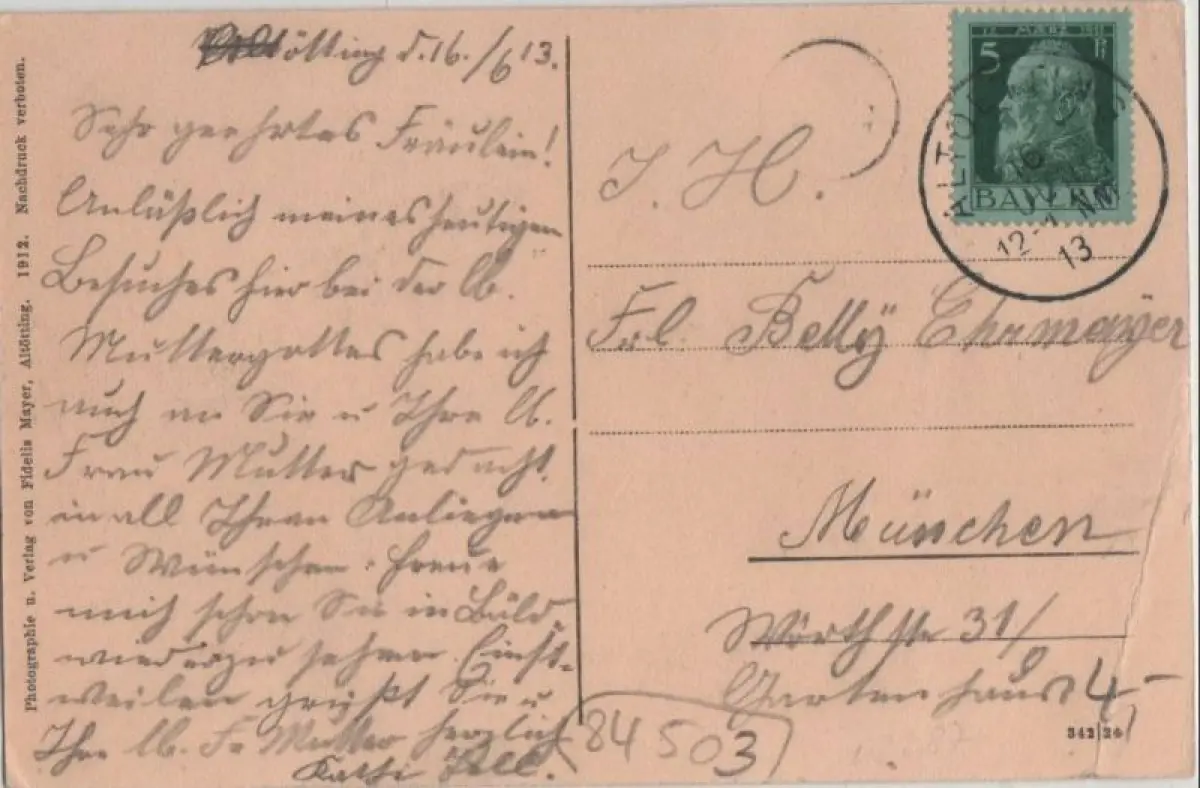 Photographie u. Verlag von Fidelis Mayer, Altötting. 1912. Nachdruck verboten.
Altötting d. 16./6 13.
Sehr geehrtes Fräulein!
Anläßlich meines heutigen
Besuches hier bei der lb.
Muttergottes habe ich
auch an Sie u Ihre lb.
Frau Mutter gedacht
in all Ihren Anliegen
u Wünschen. Freue
mich schon Sie in Bäld
wiederzusehen. Einst-
weilen grüßt Sie u
Ihre lb. Fr Mutter herzlich
Kathi
12 MÆRZ 1911
5 Pf
BAYERN
12-1 NM
13
S. H.
Frl. Betty Ehrmayer
München
Wörthstr 31/
Gartenhaus 4
84503
342 24